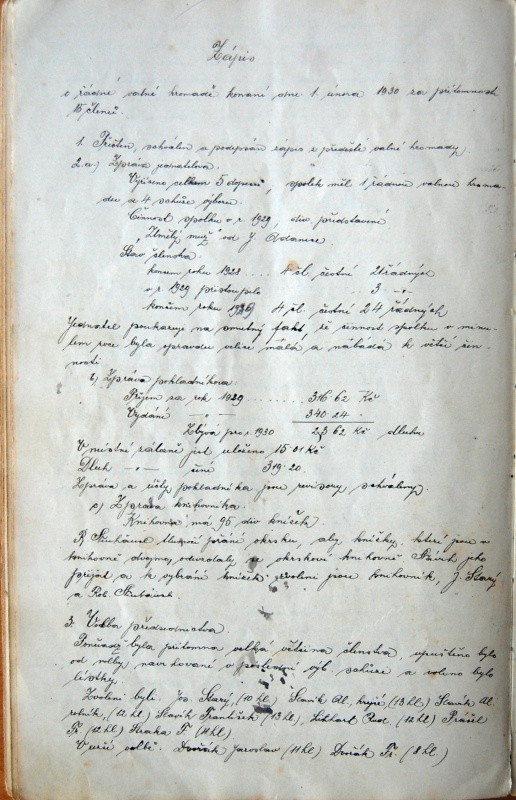 Zápis
o řádné valné hromadě konané dne 1. února 1930 za přítomnosti
15 členů.
1. Přečten, schválen a podepsán zápis z předešlé valné hromady.
2. a.) Zpráva jednatelova.
Vyřízeno celkem 5 dopisů, spolek měl 1 řádnou valnou hroma-
du a 4 schůze výboru.
Činnost spolku v r. 1929, div. představení
„Změlý muž" od J.
Stav členstva
koncem roku 1928 .... 4 čl. čestní 21 řádných
v r. 1929 přistoupilo 3 -„-
koncem roku 1929 4 čl. čestní 24 řádných
Jednatel poukazuje na smutný fakt, že činnost spolku v minu-
lém roce byla opravdu velice malá, a nabádá k větší čin-
nosti.
b) Zpráva pokladníkova.
Příjem za rok 1929 ........ 316.62 Kč
Vydání -„- 340.24 .
Zbývá pro r. 1930 23.62 Kč dluhu
V místní záložně jest uloženo 15.01 Kč
Dluh -„- činí 319.20.
Zpráva a účty pokladníka jsou revisory schváleny.
c) Zpráva knihovníka.
Knihovna má 95 div. knížek
R. tlumočí přání okrsku, aby knížky, které jsou v
knihovně dvojmo, odevzdaly se okrskové knihovně. Návrh jeho
přijat a k vybrání knížek zvoleni jsou knihovník, J. Starý
a Rob.
3. Volba předsednictva
Poněvadž byla přítomna velká většina členstva, upuštěno bylo
od volby navrhované v poslední výb. schůzi a voleno bylo
lístky.
Zvoleni byli: Jos. Starý, (10 hl) Slavík Al. krejčí (13 hl) Slavík Al.
rolník, (12 hl) Slavík František (13 hl), Líkhart Rud. (12 hl) Prášil
Fr. (12 hl) Straka F. (11 hl)
V užší volbě: Dvořák Jaroslav (11 hl) Dvořák Fr. (8 hl.)